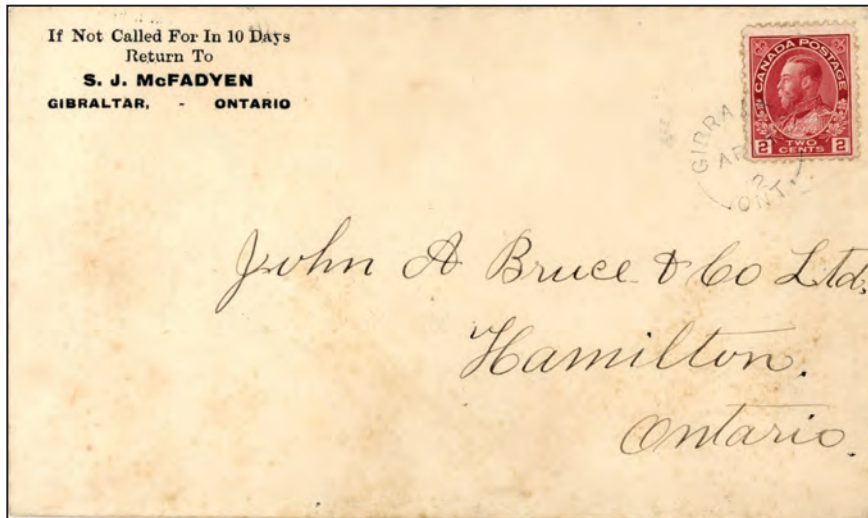 If Not Called For In 10 Days
Return To
S. J. McFADYEN
GIBRALTAR, - ONTARIO
CANADA POSTAGE
2 TWO CENTS 2
AP
2
ONT.
John A Bruce & Co Ltd.
Hamilton.
Ontario.